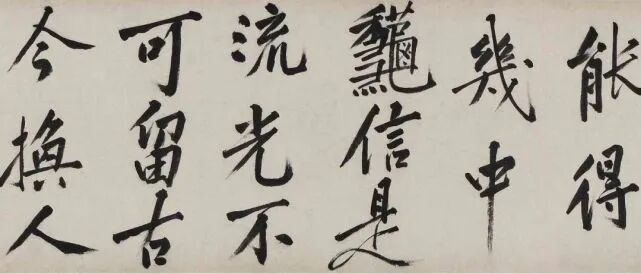 能得
幾中
龝信是
流光不
可留古
今換人